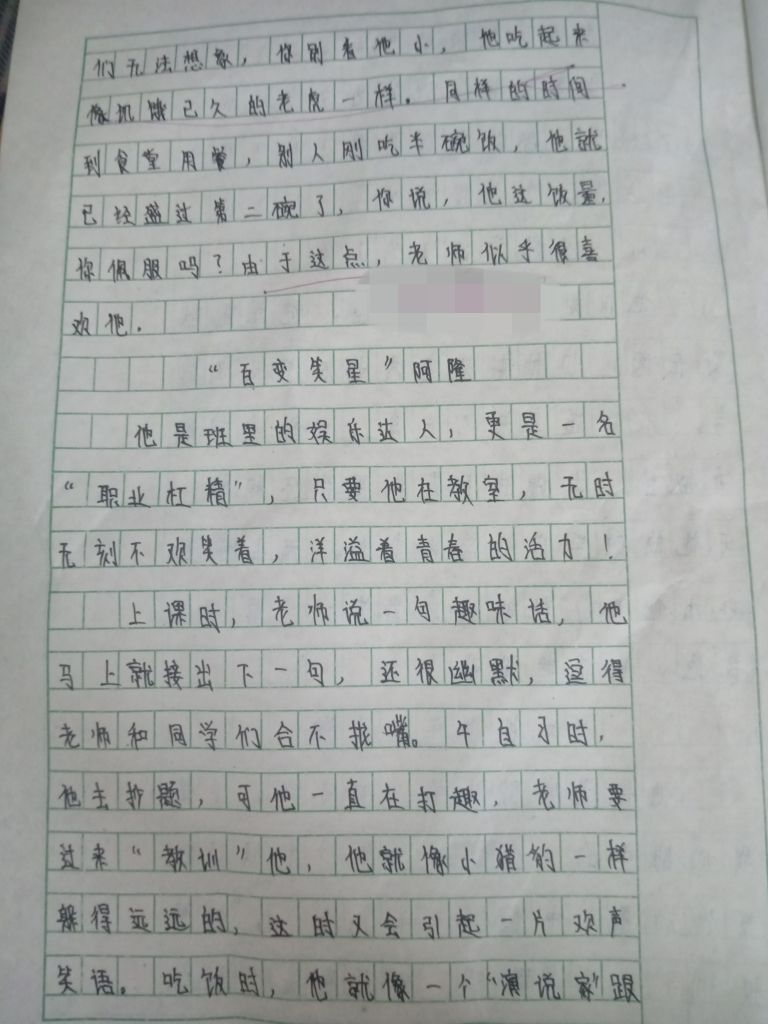 们无法想象，你别看他小，他吃起来
像饥饿已久的老虎一样。同样的时间
到食堂用餐，别人刚吃半碗饭，他就
已经盛过第二碗了，你说，他这饭量，
你佩服吗？由于这点，老师似乎很喜
欢他。
“百变笑星”阿隆
他是班里的娱乐达人，更是一名
“职业杠精”，只要他在教室，无时
无刻不欢笑着，洋溢着青春的活力！
上课时，老师说一句趣味话，他
马上就接出下一句，还很幽默，逗得
老师和同学们合不拢嘴。午自习时，
他去抄题，可他一直在打趣，老师要
过来“教训”他，他就像小猫豹一样
躲得远远的，这时又会引起一片欢声
笑语。吃饭时，他就像一个“演说家”跟